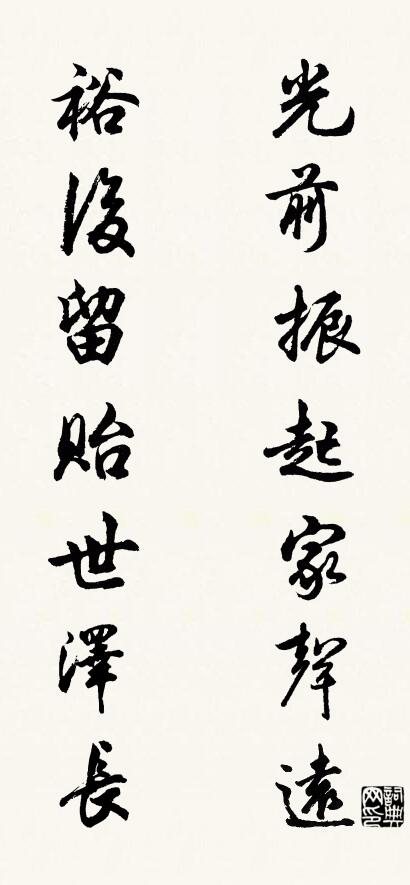 光前振起家聲遠
裕後留貽世澤長
詞典网